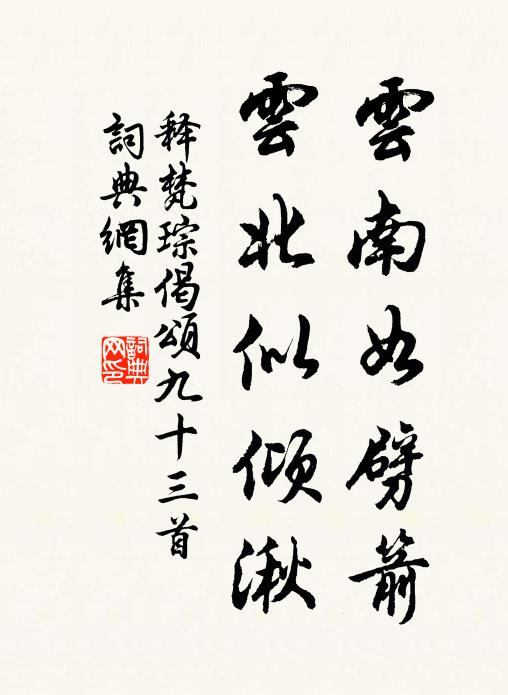 雲南如劈箭
雲北似傾湫
释梵琮偈頌九十三首
詞典網集
詞典網印